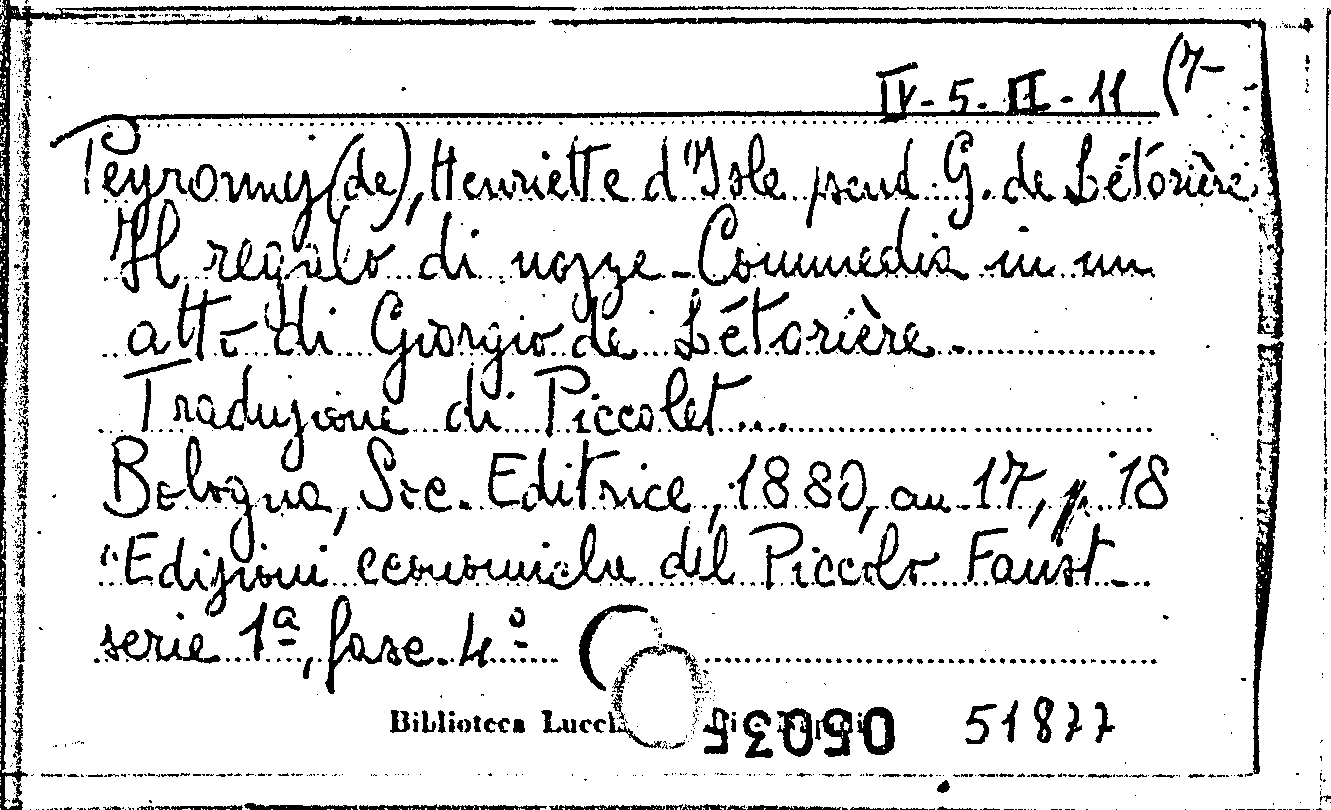 IV-5-VI-11 (7-
Peyronny (de), Henriette d'Isle pseud. G. de Létorière
Il regalo di nozze - Commedia in un
atto di Giorgio de Létorière.
Traduzione di Piccolet...
Bologna, Soc. Editrice, 1880, au 17, p. 18
"Edizioni economiche del Piccolo Faust -
serie 1ª, fasc. 4º
Biblioteca Lucch
05035 51877